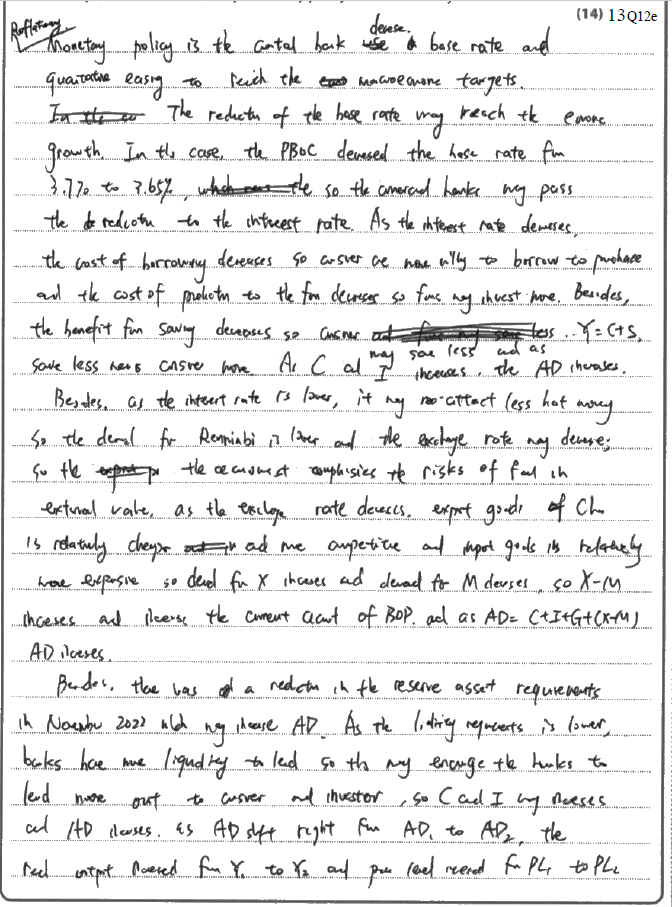 (14) 13Q12e
Reflationary
decrese.
Monetary policy is the central bank use a base rate and
quantative easing to reich the macroeconomic targets.
In the The reductn of the base rate may reach the
growth. In ths case, the PBoC decresed the base rate frm
3.7% to 3.65%, which the so the commercial banks may pass
the reduction to the intreest rate. As the interest rate decreses,
the cost of borrowing decreases so are more to borrow to purchase
and the cost of to the firm decreses so firms may invest more. Besides,
the benefit from saving decreases so less. Y=C+S,
may save less and as
save less means more. As C and I increases, the AD increases.
Besides, as the interest rate is lower, it may attact less hot money
so the demand for Renminbi is lower and the exchange rate may decrese;
so the the emphisies the risks of fall in
external value, as the exchange rate decreses. export goods of
is relatively and more competitive and import goods is relatively
more expensive so demand for X increses and demand for M decreses, so X-M
increses and the current account of BOP. and as AD= C+I+G+(X-M)
AD increses.
Besides, there was a a reduction in the reserve asset requirements
in November 2022 which may increase AD. As the requirements is lower,
banks have more liquidity to lend so may the banks to
lend more out to and investor, so C and I may increses
and AD increses. as AD shift right from AD₁ to AD₂, the
real output from Y₁ to Y₂ and price level from PL₁ to PL₂